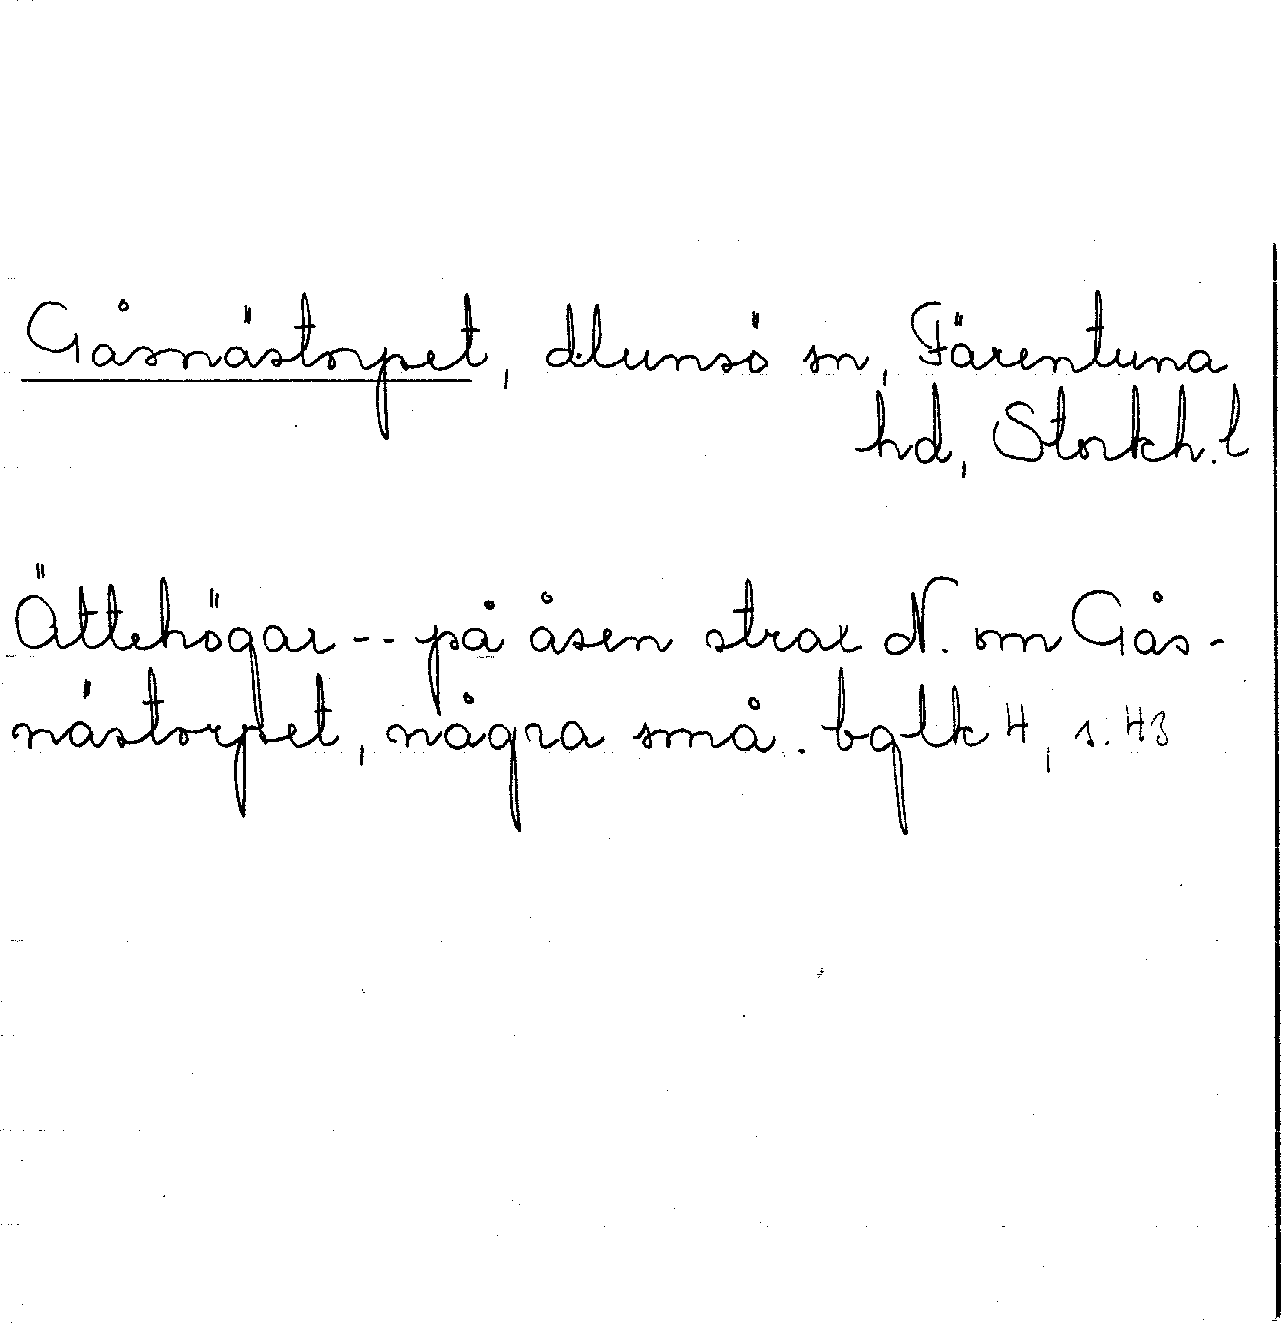 Gåsnästorpet, Munsö sn, Färentuna
hd, Stockh. l
Ättehögar -- på åsen strax N. om Gås-
nästorpet, några små. bglk 4, s. 43